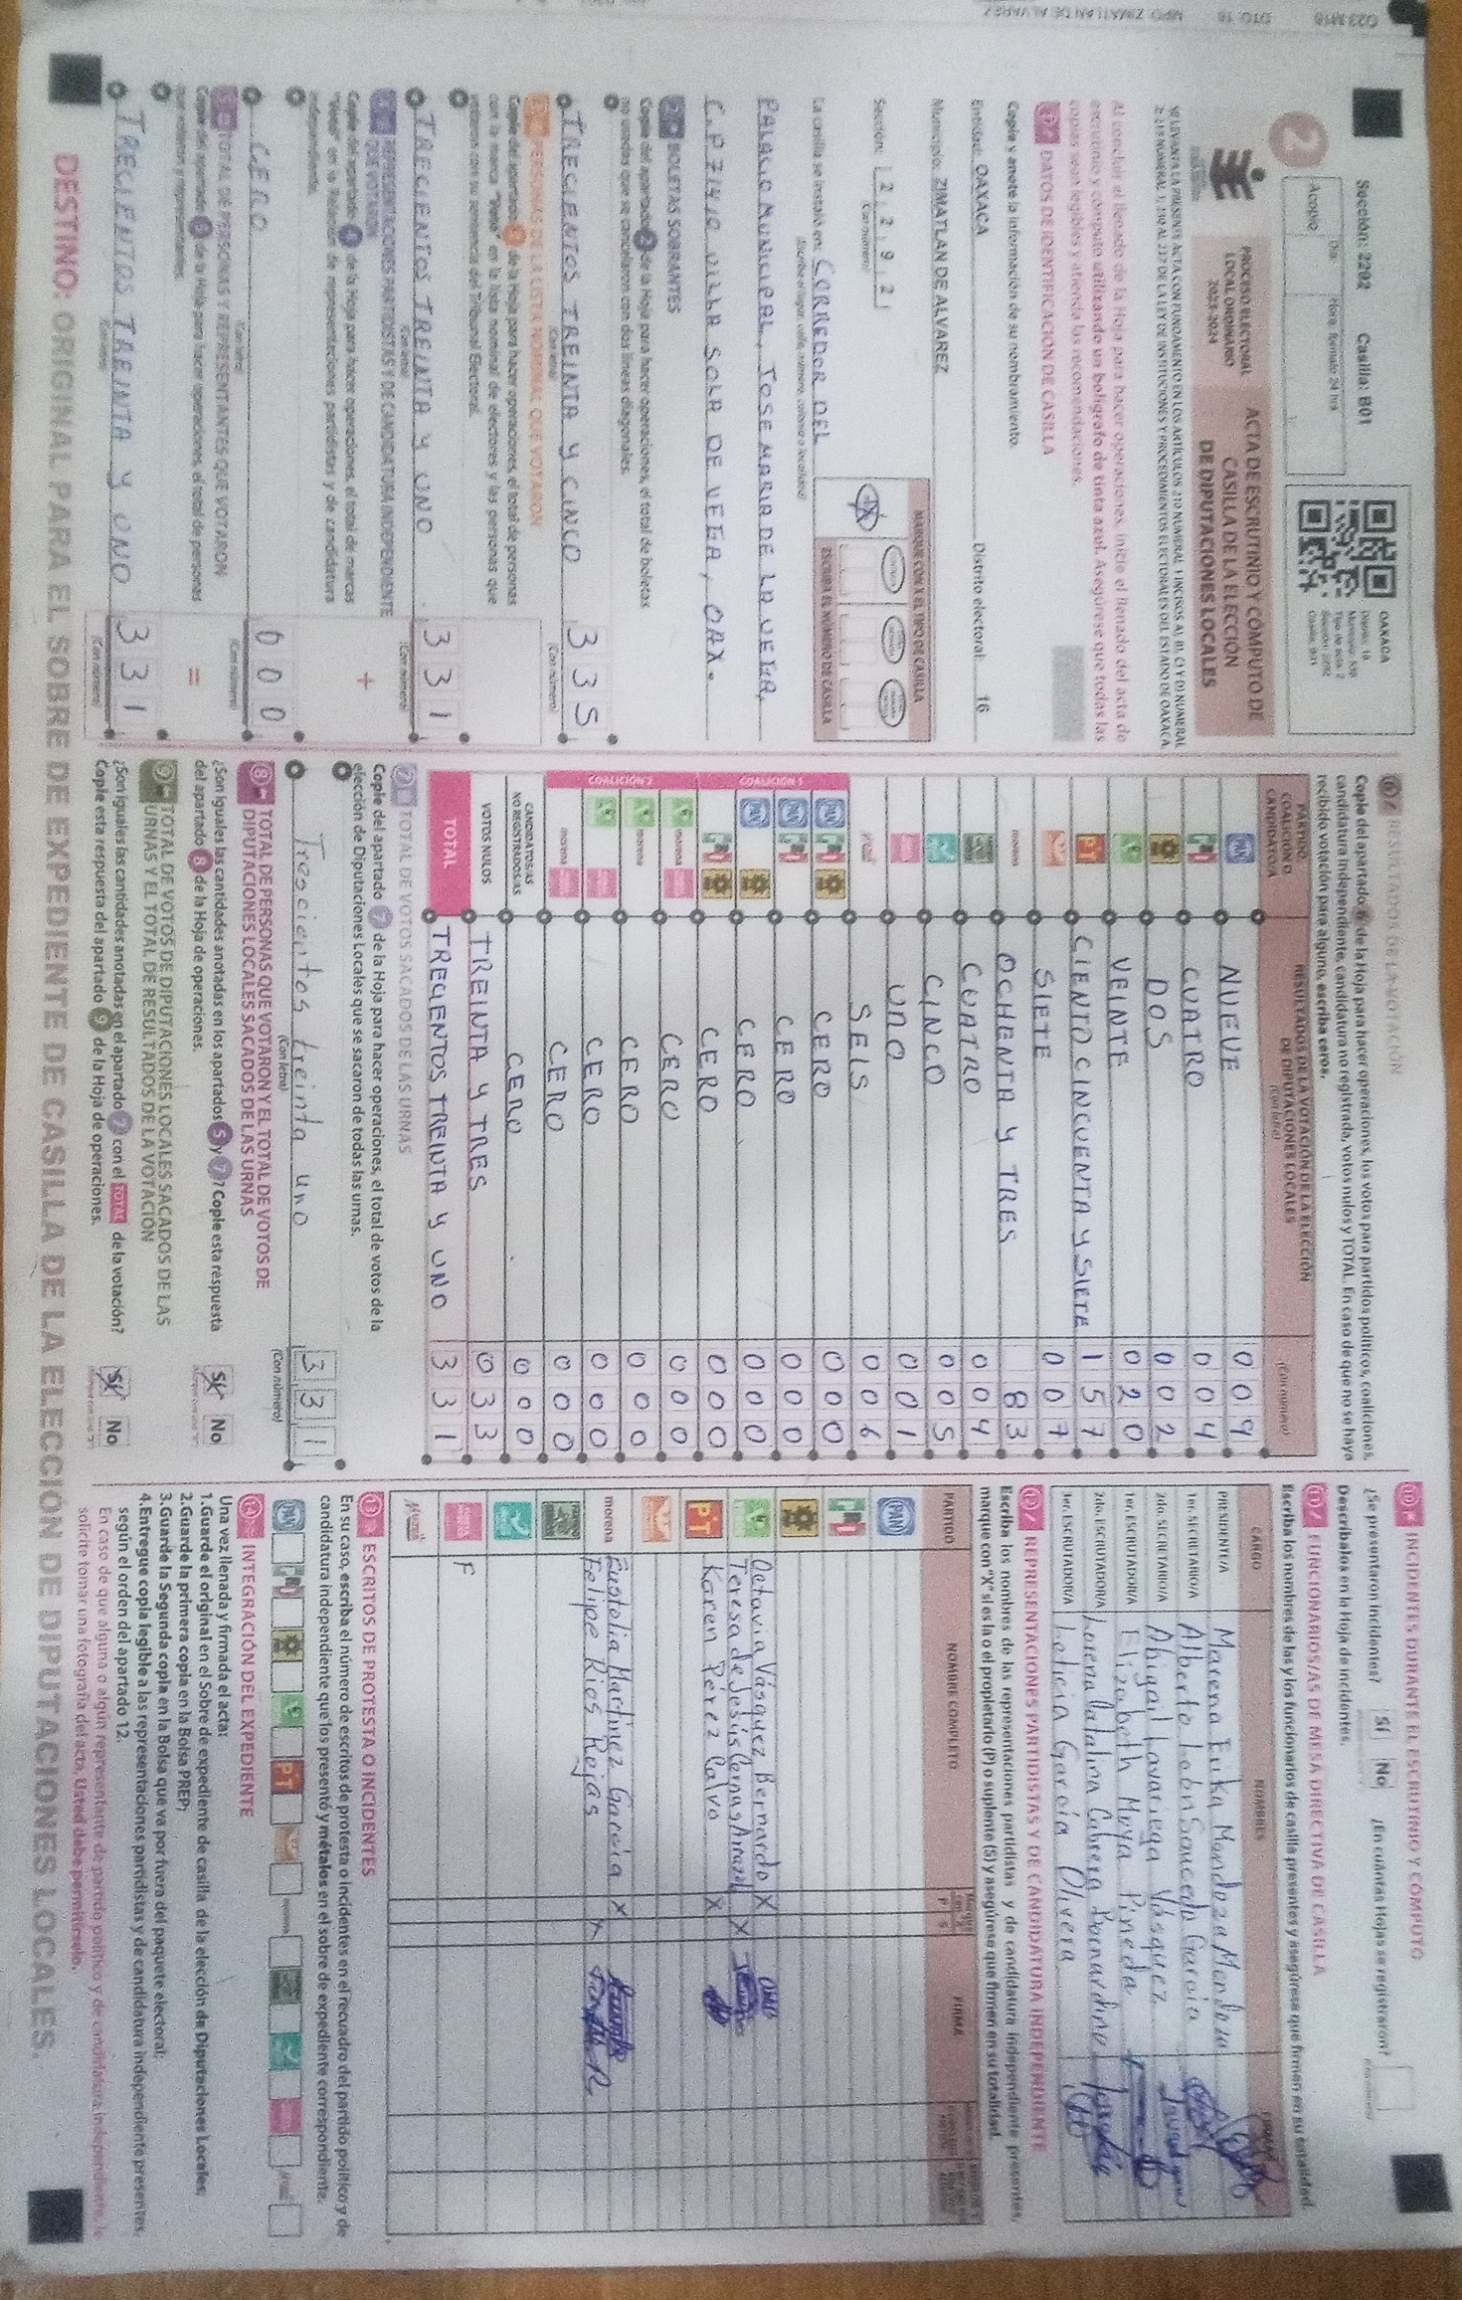 Sección: 2292 Casilla: B01
Día: Hora: formato 24 hrs
Acopio:
2
OAXACA
PROCESO ELECTORAL
LOCAL ORDINARIO
2023-2024
ACTA DE ESCRUTINIO Y CÓMPUTO DE
CASILLA DE LA ELECCIÓN
DE DIPUTACIONES LOCALES
Al concluir el llenado de la Hoja para hacer operaciones, inicie el llenado del acta de
escrutinio y cómputo utilizando un bolígrafo de tinta azul. Asegúrese que todas las
copias sean legibles y atienda las recomendaciones.
1 DATOS DE IDENTIFICACIÓN DE CASILLA
Copie y anote la información de su nombramiento.
Entidad: OAXACA Distrito electoral: 16
Municipio: ZIMATLAN DE ALVAREZ
Sección: 2 2 9 2
(Con número)
MARQUE CON X EL TIPO DE CASILLA
ESCRIBA EL NÚMERO DE CASILLA
La casilla se instaló en: CORREDOR DEL
PALACIO MUNICIPAL, JOSE MARIA DE LA VEGA,
C.P 71410 VILLA SOLA DE VEGA, OAX.
2 BOLETAS SOBRANTES
Copie del apartado 2 de la Hoja para hacer operaciones, el total de boletas
no usadas que se cancelaron con dos líneas diagonales.
TRECIENTOS TREINTA Y CINCO 335
(Con letra) (Con número)
3 PERSONAS DE LA LISTA NOMINAL QUE VOTARON
Copie del apartado 3 de la Hoja para hacer operaciones, el total de personas
con la marca "Votó" en la lista nominal de electores y las personas que
votaron con su sentencia del Tribunal Electoral.
TRECIENTOS TREINTA Y UNO 331
(Con letra) (Con número)
4 REPRESENTACIONES PARTIDISTAS Y DE CANDIDATURA INDEPENDIENTE
QUE VOTARON
Copie del apartado 4 de la Hoja para hacer operaciones, el total de marcas
"Votó" en la Relación de representaciones partidistas y de candidatura
independiente.
+
CERO 000
(Con letra) (Con número)
5 TOTAL DE PERSONAS Y REPRESENTANTES QUE VOTARON
Copie del apartado 5 de la Hoja para hacer operaciones, el total de personas
que votaron y representantes.
=
TRECIENTOS TREINTA Y UNO 331
(Con letra) (Con número)
6 RESULTADOS DE LA VOTACIÓN
Copie del apartado 6 de la Hoja para hacer operaciones, los votos para partidos políticos, coaliciones,
candidatura independiente, candidatura no registrada, votos nulos y TOTAL. En caso de que no se haya
recibido votación para alguno, escriba ceros.
PARTIDO, COALICIÓN O CANDIDATO/A
RESULTADOS DE LA VOTACIÓN DE LA ELECCIÓN
DE DIPUTACIONES LOCALES
(Con letra) (Con número)
PAN NUEVE 009
PRI CUATRO 004
DOS 002
VEINTE 020
PT CIENTO CINCUENTA Y SIETE 157
SIETE 007
morena OCHENTA Y TRES 83
CUATRO 004
CINCO 005
UNO 001
SEIS 006
COALICIÓN 1
PAN PRI CERO 000
PAN PRI CERO 000
PAN CERO 000
PRI CERO 000
COALICIÓN 2
morena CERO 000
morena CERO 00
CERO 000
morena CERO 000
CANDIDATOS/AS
NO REGISTRADOS/AS CERO 000
VOTOS NULOS TREINTA Y TRES 033
TOTAL TRECIENTOS TREINTA Y UNO 331
7 TOTAL DE VOTOS SACADOS DE LAS URNAS
Copie del apartado 7 de la Hoja para hacer operaciones, el total de votos de la
elección de Diputaciones Locales que se sacaron de todas las urnas.
Trescientos treinta uno 331
(Con letra) (Con número)
8 TOTAL DE PERSONAS QUE VOTARON Y EL TOTAL DE VOTOS DE
DIPUTACIONES LOCALES SACADOS DE LAS URNAS
¿Son iguales las cantidades anotadas en los apartados 5 y 7? Copie esta respuesta
del apartado 8 de la Hoja de operaciones. Sí No
9 TOTAL DE VOTOS DE DIPUTACIONES LOCALES SACADOS DE LAS
URNAS Y EL TOTAL DE RESULTADOS DE LA VOTACIÓN
¿Son iguales las cantidades anotadas en el apartado 7 con el TOTAL de la votación?
Copie esta respuesta del apartado 9 de la Hoja de operaciones. Sí No
10 INCIDENTES DURANTE EL ESCRUTINIO Y CÓMPUTO
¿Se presentaron incidentes? Sí No ¿En cuántas Hojas se registraron?
Descríbalos en la Hoja de incidentes.
11 FUNCIONARIOS/AS DE MESA DIRECTIVA DE CASILLA
Escriba los nombres de las y los funcionarios de casilla presentes y asegúrese que firmen en su totalidad.
CARGO NOMBRES FIRMAS
PRESIDENTE/A Macena Erika Mendoza Mendoza
1er. SECRETARIO/A Alberto Lobn Saucedo Garcia
2do. SECRETARIO/A Abigail Lavariega Vásquez
1er. ESCRUTADOR/A Elizabeth Moya Pineda
2do. ESCRUTADOR/A Lorena Catalina Cabrera Bernardino
3er. ESCRUTADOR/A Leticia García Olivera
12 REPRESENTACIONES PARTIDISTAS Y DE CANDIDATURA INDEPENDIENTE
Escriba los nombres de las representaciones partidistas y de candidatura independiente presentes,
marque con "X" si es la o el propietario (P) o suplente (S) y asegúrese que firmen en su totalidad.
PARTIDO NOMBRE COMPLETO P S FIRMA
PAN
Octavia Vásquez Bernardo X
Teresa de Jesús X
PT Karen Pérez Calvo X
morena Eustolia Martínez García X
Felipe Rios Rojas X
F
13 ESCRITOS DE PROTESTA O INCIDENTES
En su caso, escriba el número de escritos de protesta o incidentes en el recuadro del partido político y de
candidatura independiente que los presentó y métalos en el sobre de expediente correspondiente.
PAN PT
14 INTEGRACIÓN DEL EXPEDIENTE
Una vez llenada y firmada el acta:
1.Guarde el original en el Sobre de expediente de casilla de la elección de Diputaciones Locales;
2.Guarde la primera copia en la Bolsa PREP;
3.Guarde la Segunda copia en la Bolsa que va por fuera del paquete electoral;
4.Entregue copia legible a las representaciones partidistas y de candidatura independiente presentes,
según el orden del apartado 12.
En caso de que alguna o algún representante de partido político y de candidatura independiente, le
solicite tomar una fotografía del acta, Usted debe permitírselo.
DESTINO: ORIGINAL PARA EL SOBRE DE EXPEDIENTE DE CASILLA DE LA ELECCIÓN DE DIPUTACIONES LOCALES.